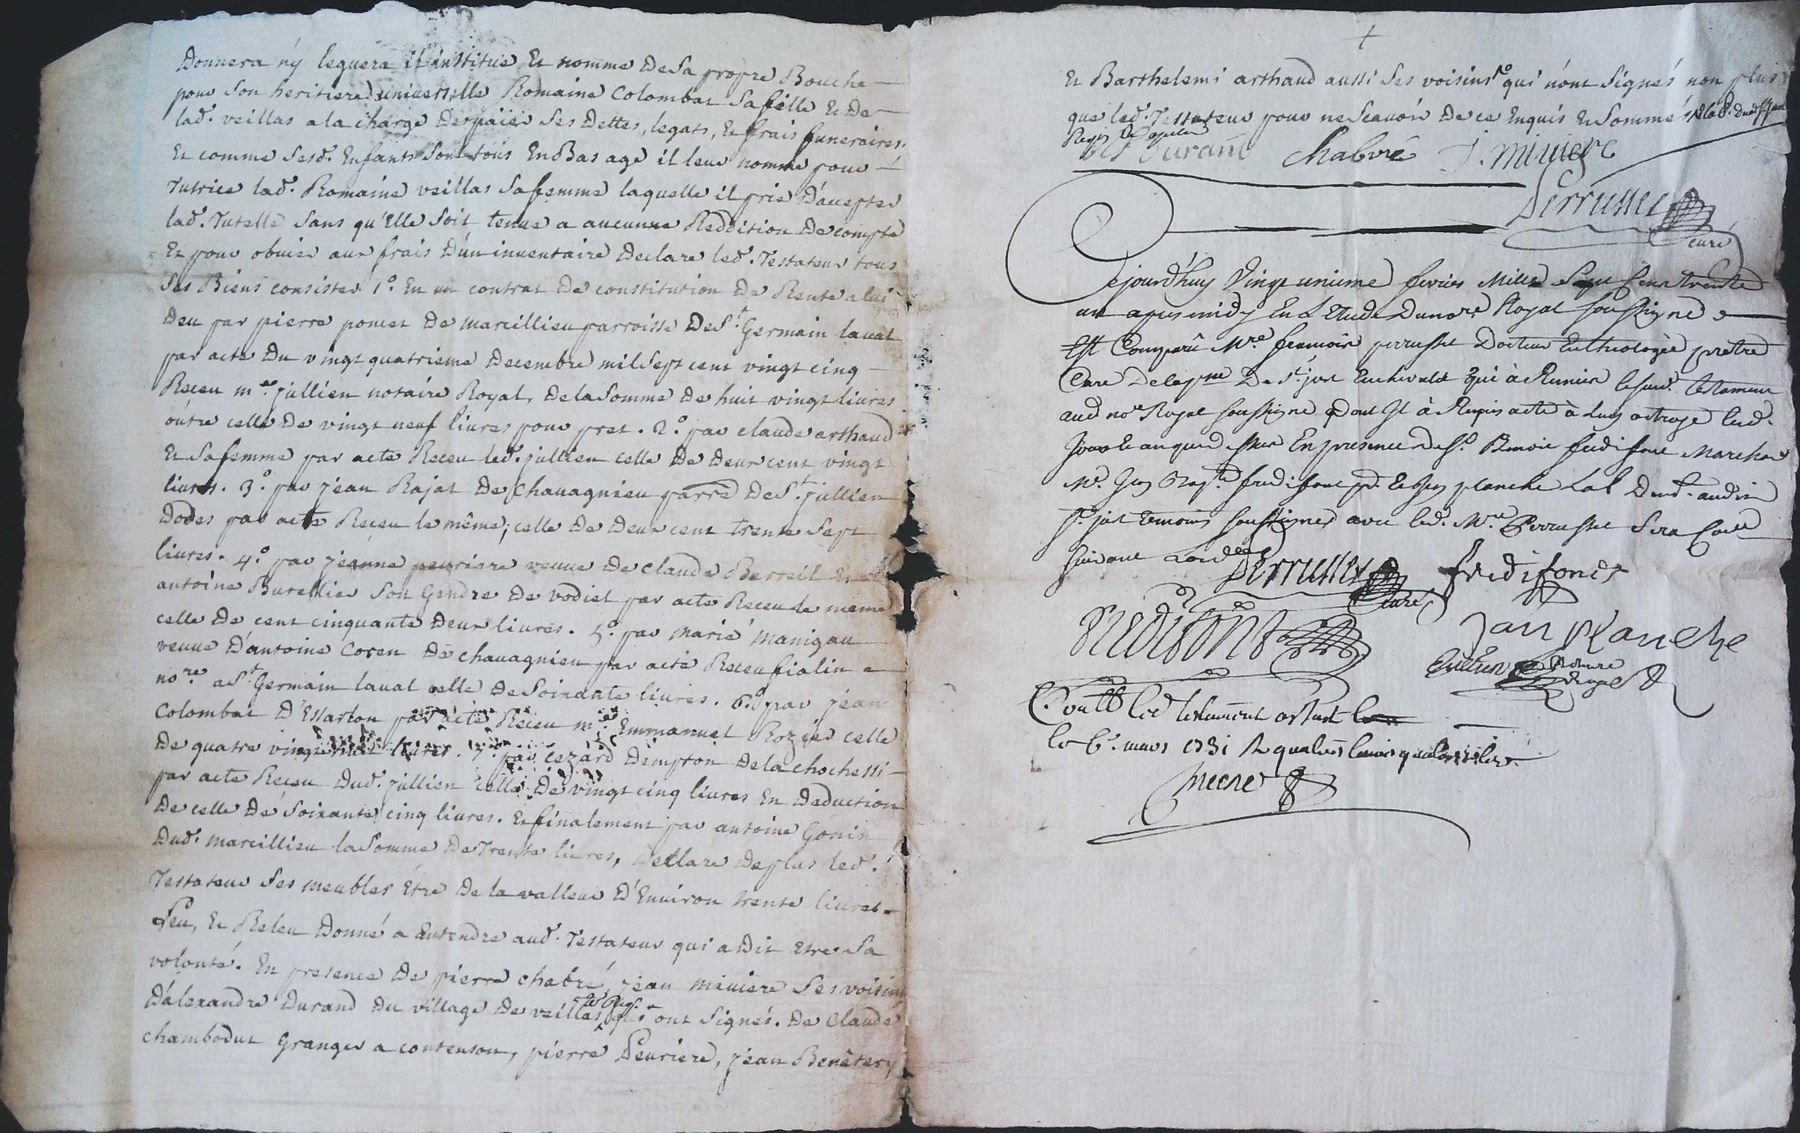 Donnera ny leguera il institue Et nomme De sa propre Bouche
pour son heritiere universelle Romaine Colombat sa fille Et De
lad. veillas a la charge De paier ses Dettes, legats, Et frais funeraires.
Et comme sesd. Enfants sont tous En Bas age il leur nomme pour
Tutrice lad. Romaine veillas sa femme laquelle il prie D'accepter
lad. Tutelle sans qu'Elle soit tenue a aucunne Reddition De compte
Et pour obvier aux frais D'un inventaire Declare led. Testateur tous
ses Biens consister 1o. En un contrat De constitution De Rente a lui
Deu par pierre poncet De marcillieu parroisse De St. Germain laval
par acte Du vingt quatrieme Decembre mil sept cent vingt cinq
Receu me jullien notaire Royal, De la somme De huit vingt livres
outre celle De vingt neuf livres pour pret. 2o. par claude arthaud
Et sa femme par acte Receu led. jullien celle De Deux cent vingt
livres. 3o. par jean Rajat De chavagnieu parre De St. jullien
Dodes par acte Receu le même; celle De Deux cent trente sept
livres. 4o. par jeanne peuriere veuve De claude Berreil Et
antoine Burellier son Gendre De vodiel par acte Receu le meme
celle De cent cinquante Deux livres. 5o. par marie manigau
veuve D'antoine Coren De chavagnieu par acte Receu fialin
nore a St. Germain laval celle De soixante livres. 6o par jean
Colombat D'Essarton par acte Receu me Emmanuel Rozier celle
De quatre vingt livres. 7o. par Cezard Dempton De la chochetti
par acte Receu Dud. jullien celle De vingt cinq livres En Deduction
De celle De soixante cinq livres. Et finalement par antoine Gonin
Dud. marcillieu la somme De Trente livres, Declare De plus led.
Testateur ses meubles Etre De la valleur D'Environ trente livres
Leu, Et Releu Donné a Entendre aud. Testateur qui a Dit Etre sa
volonté. En presence De pierre chabré, jean miviere ses voisins
D'alexandre Durand Du village De veillas qui ont signés. De Claude
chambodut Granger a contenson, pierre Peuriere, jean Benêtery
Et Barthelemi arthaud aussi ses voisins qui n'ont signés non plus
que led. Testateur pour ne scavoir De ce Enquis Et sommés
Durand Chabré J. miviere
Perrussel
curé
Cejourd'huy vingt unieme fevrier Mille sept cent trente
un apres midy En L'Etude Du nore Royal soussigné
Est Comparu Mre francois perrussel Docteur En theologie prêtre
Curé De la psse De St. just En chevalet qui à Remis le Testament
aud nore Royal soussigné Dont Il à Requis acte à luy octroyé
En presence De Sr. Benoit fredifont Marchand
fredifont Et jean planche
St. just temoins soussignés avec led. Mre Perrussel
suivant
Perrussel fredifont
curé
fredifont jan planche
Jullien notaire
Royal
Controllé led testament
le 6e. mars 1731